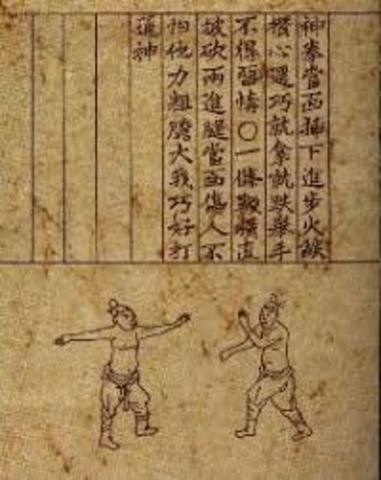 神拳當面揷下進步火燄
攢心遇巧就拿就跌舉手
不得留情○一條鞭橫直
披砍兩進腿當面傷人不
怕他力粗膽大我巧好打
通神